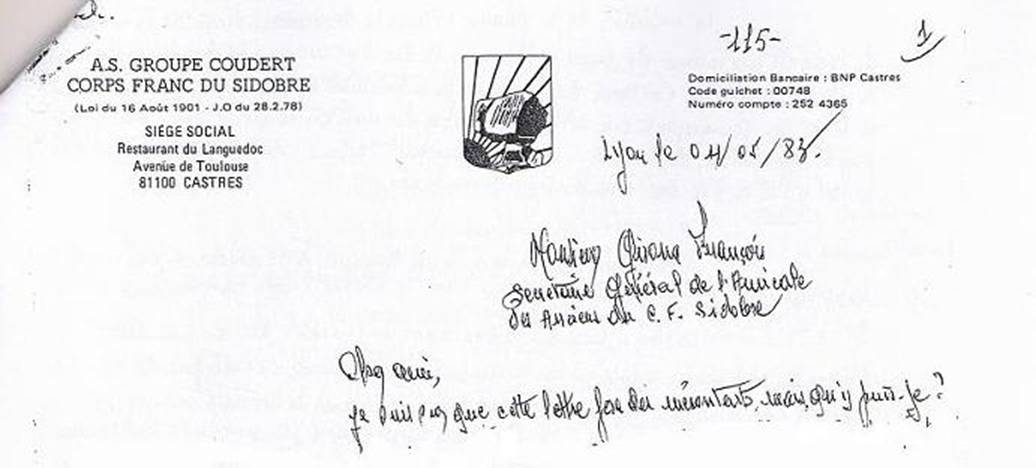 -115-
1
A.S. GROUPE COUDERT
CORPS FRANC DU SIDOBRE
(Loi du 16 Août 1901 - J.O du 28.2.78)
SIÉGE SOCIAL
Restaurant du Languedoc
Avenue de Toulouse
81100 CASTRES
Domiciliation Bancaire : BNP Castres
Code guichet : 00748
Numéro compte : 252 4365
Lyon le 04/05/83.
Monsieur François
Secretaire Général de l'Amicale
des Anciens du C.F. Sidobre
Cher ami,
je que cette lettre fera des mécontents, mais qu'y puis-je ?